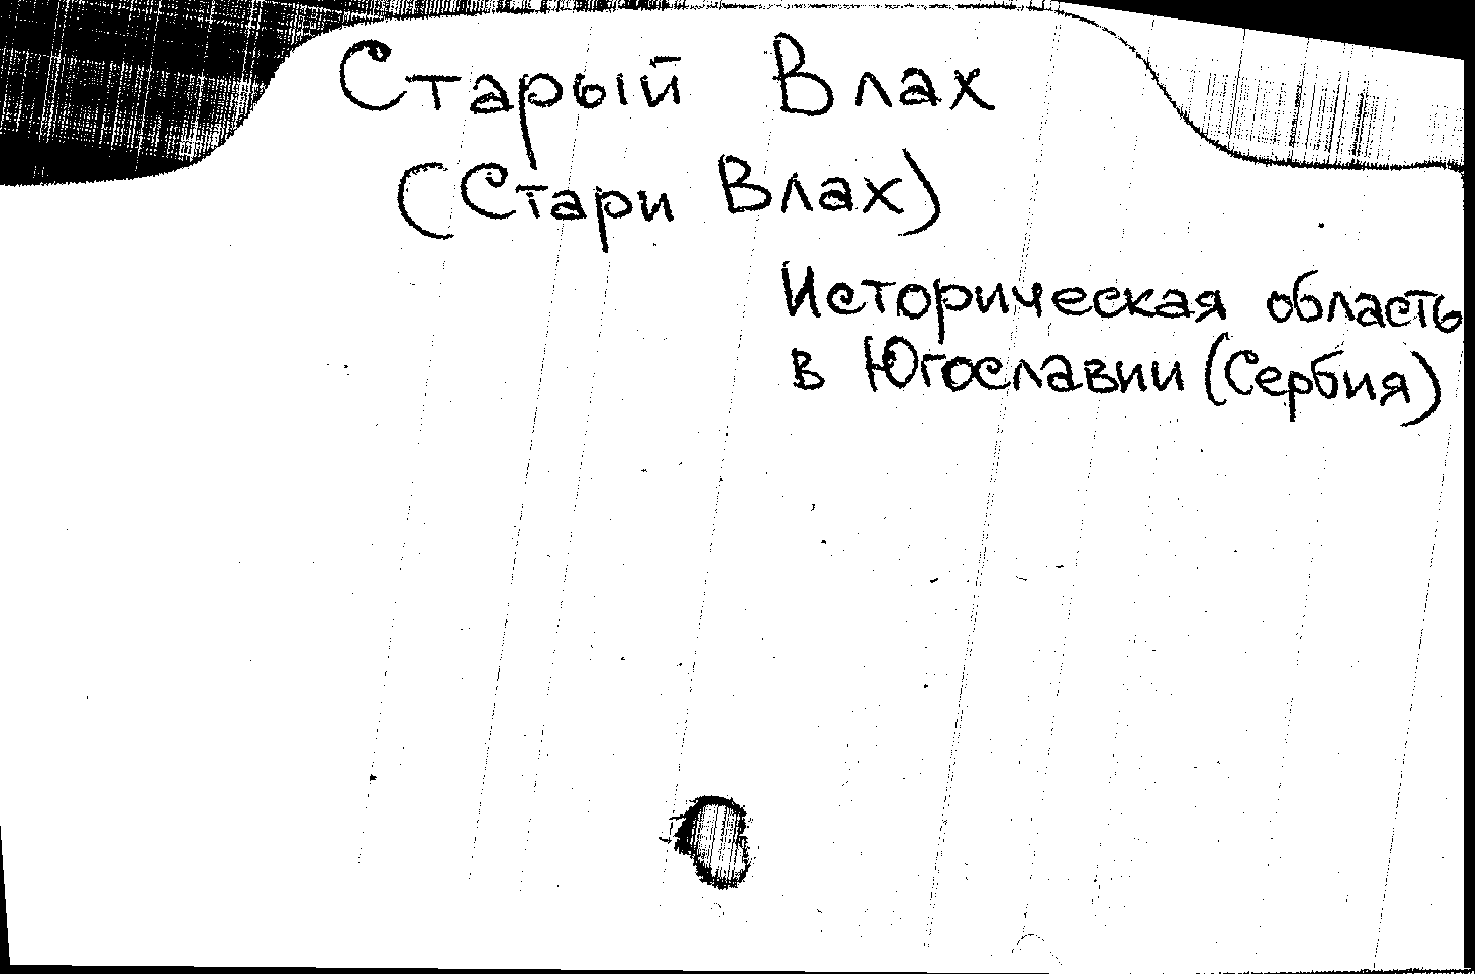 Старый Влах
(Стари Влах)
Историческая область
в Югославии (Сербия)